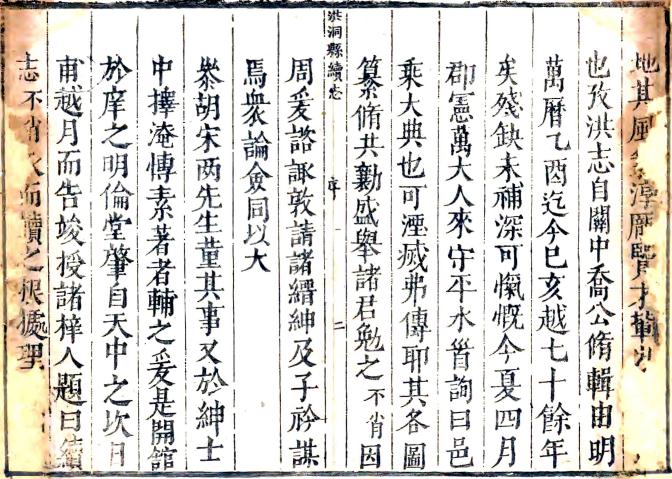 地其風淳龐賢才輩
也攷洪志自關中喬公脩輯由明
萬曆乙酉迄今己亥越七十餘年
矣殘缺未補深可愾慨今夏四月
郡憲萬大人來守平水首詢曰邑
乘大典也可湮滅弗傳耶其各圖
纂脩共勷盛舉諸君勉之不肖因
洪洞縣續志 序 二
周爰諮諏敦請諸縉紳及子衿謀
焉衆論僉同以大
㤗胡宋两先生董其事又於紳士
中擇淹愽素著者輔之爰是開舘
於庠之明倫堂肇自天中之次日
甫越月而告竣授諸梓人題曰續
志不肖而讀之根據理